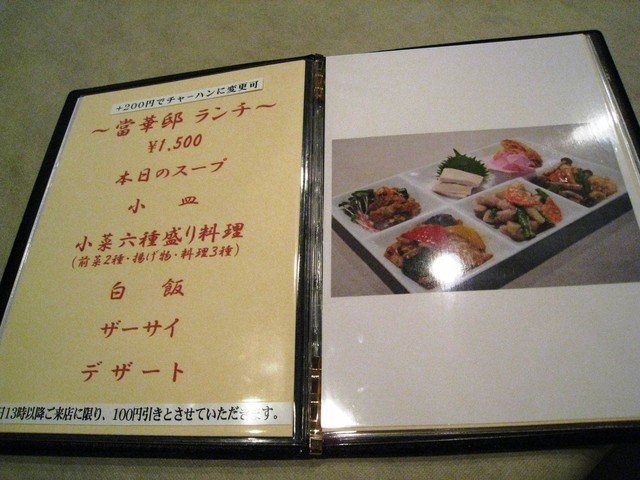 +200円でチャーハンに変更可
～當華邸 ランチ～
¥1,500
本日のスープ
小 皿
小菜六種盛り料理
(前菜2種・揚げ物・料理3種)
白 飯
ザーサイ
デザート
13時以降ご来店に限り、100円引きとさせていただきます。